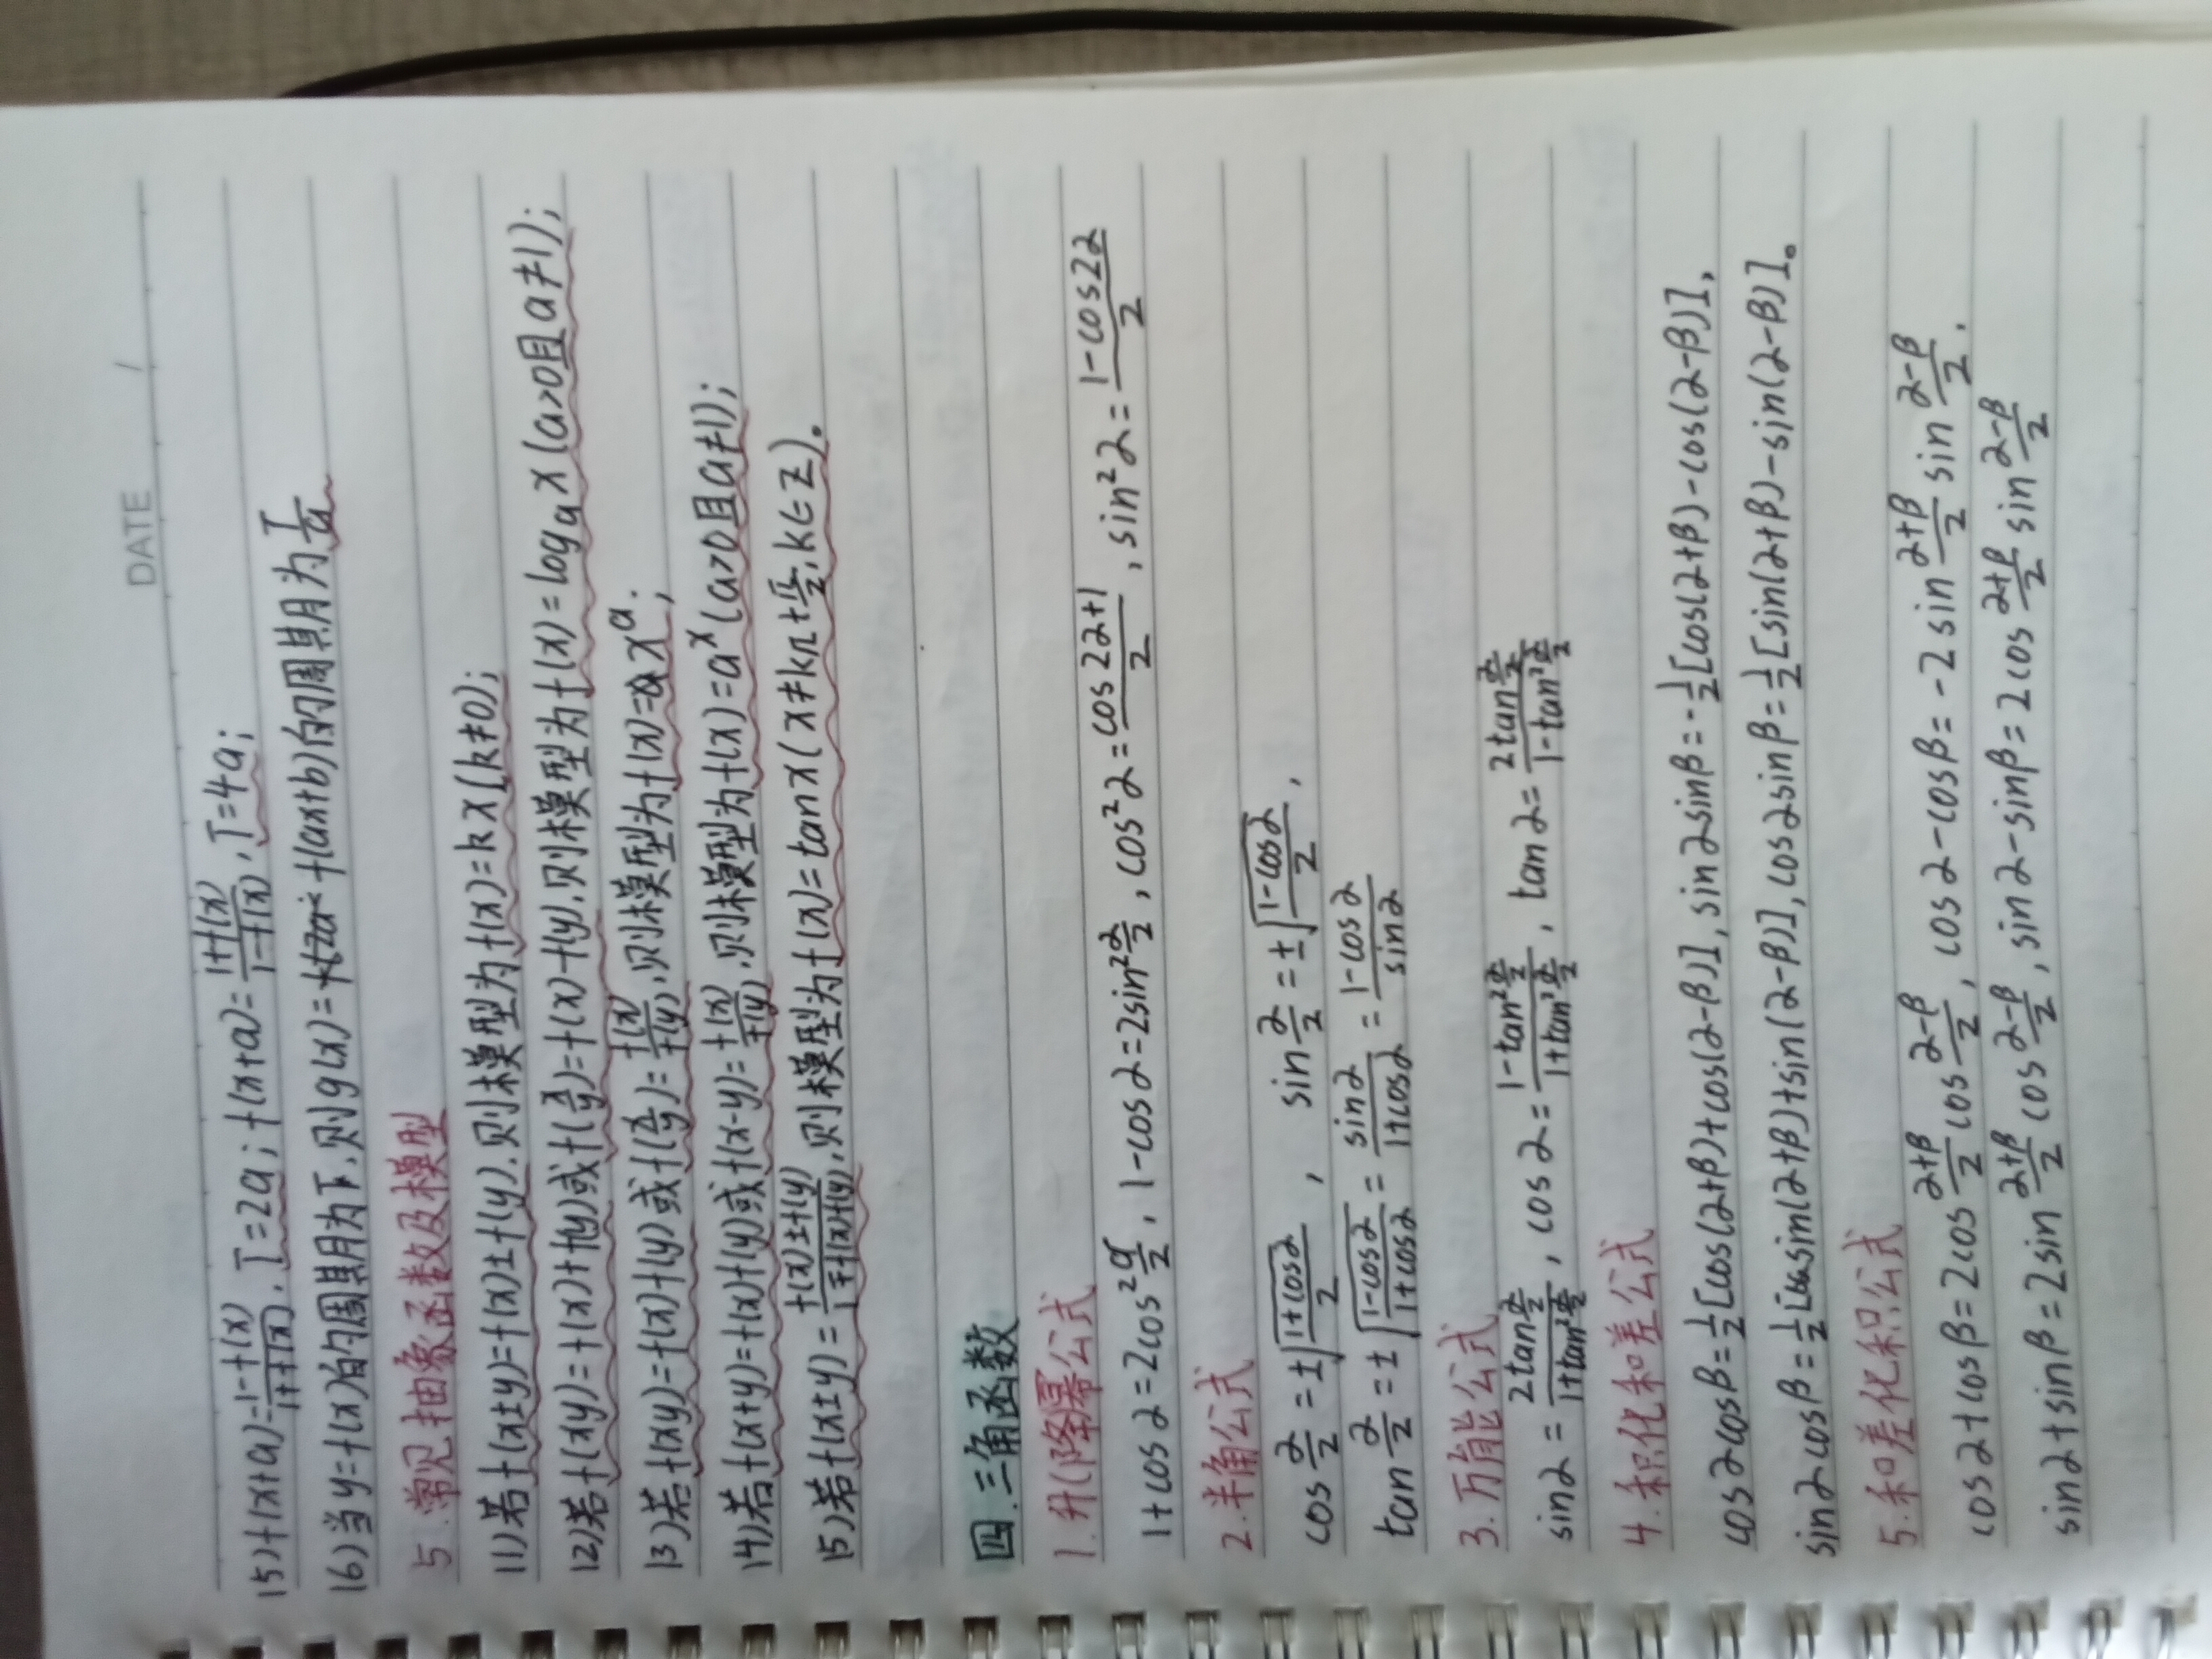 DATE /
(5) f(x+a)=\frac{1-f(x)}{1+f(x)}, T=2a; f(x+a)=\frac{1+f(x)}{1-f(x)}, T=4a;
(6) 当y=f(x)的周期为T,则g(x)=f(ax+b)的周期为\frac{T}{a}
5.常见抽象函数及模型
(1)若f(x±y)=f(x)±f(y),则模型为f(x)=kx(k≠0);
(2)若f(xy)=f(x)+f(y)或f(\frac{x}{y})=f(x)-f(y),则模型为f(x)=log_a x(a>0且a≠1);
(3)若f(xy)=f(x)f(y)或f(\frac{x}{y})=\frac{f(x)}{f(y)},则模型为f(x)=x^a;
(4)若f(x+y)=f(x)f(y)或f(x-y)=\frac{f(x)}{f(y)},则模型为f(x)=a^x(a>0且a≠1);
(5)若f(x±y)=\frac{f(x)±f(y)}{1∓f(x)f(y)},则模型为f(x)=tanx(x≠kπ+\frac{π}{2},k∈Z)。
四.三角函数
1.升(降幂公式
1+cosα=2cos²\frac{α}{2}, 1-cosα=2sin²\frac{α}{2}, cos²α=\frac{cos2α+1}{2}, sin²α=\frac{1-cos2α}{2}
2.半角公式
cos\frac{α}{2}=±\sqrt{\frac{1+cosα}{2}}, sin\frac{α}{2}=±\sqrt{\frac{1-cosα}{2}},
tan\frac{α}{2}=±\sqrt{\frac{1-cosα}{1+cosα}}=\frac{sinα}{1+cosα}=\frac{1-cosα}{sinα}
3.万能公式
sinα=\frac{2tan\frac{α}{2}}{1+tan²\frac{α}{2}}, cosα=\frac{1-tan²\frac{α}{2}}{1+tan²\frac{α}{2}}, tanα=\frac{2tan\frac{α}{2}}{1-tan²\frac{α}{2}}
4.积化和差公式
cosαcosβ=\frac{1}{2}[cos(α+β)+cos(α-β)], sinαsinβ=-\frac{1}{2}[cos(α+β)-cos(α-β)],
sinαcosβ=\frac{1}{2}[sin(α+β)+sin(α-β)], cosαsinβ=\frac{1}{2}[sin(α+β)-sin(α-β)]。
5.和差化积公式
cosα+cosβ=2cos\frac{α+β}{2}cos\frac{α-β}{2}, cosα-cosβ=-2sin\frac{α+β}{2}sin\frac{α-β}{2},
sinα+sinβ=2sin\frac{α+β}{2}cos\frac{α-β}{2}, sinα-sinβ=2cos\frac{α+β}{2}sin\frac{α-β}{2}